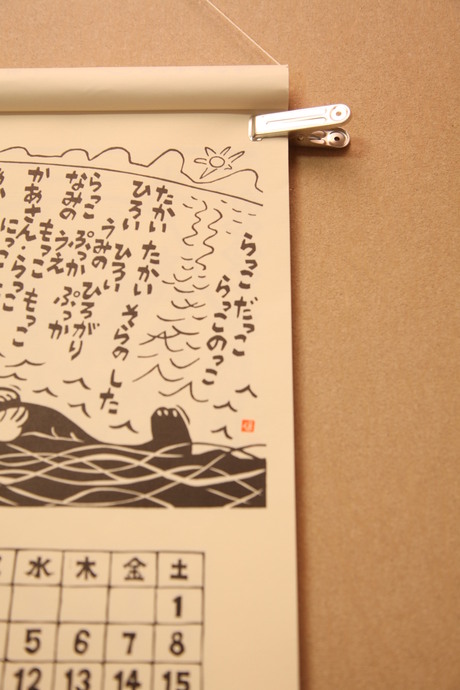 らっこ だっこ
らっこのっこ
たかい たかい そらの した
ひろい ひろい
うみの ひろがり
らっこ ぷっか ぷっか
なみの うえ
もっこ もっこ
かあさん らっこ
水 木 金 土
1
5 6 7 8
12 13 14 15